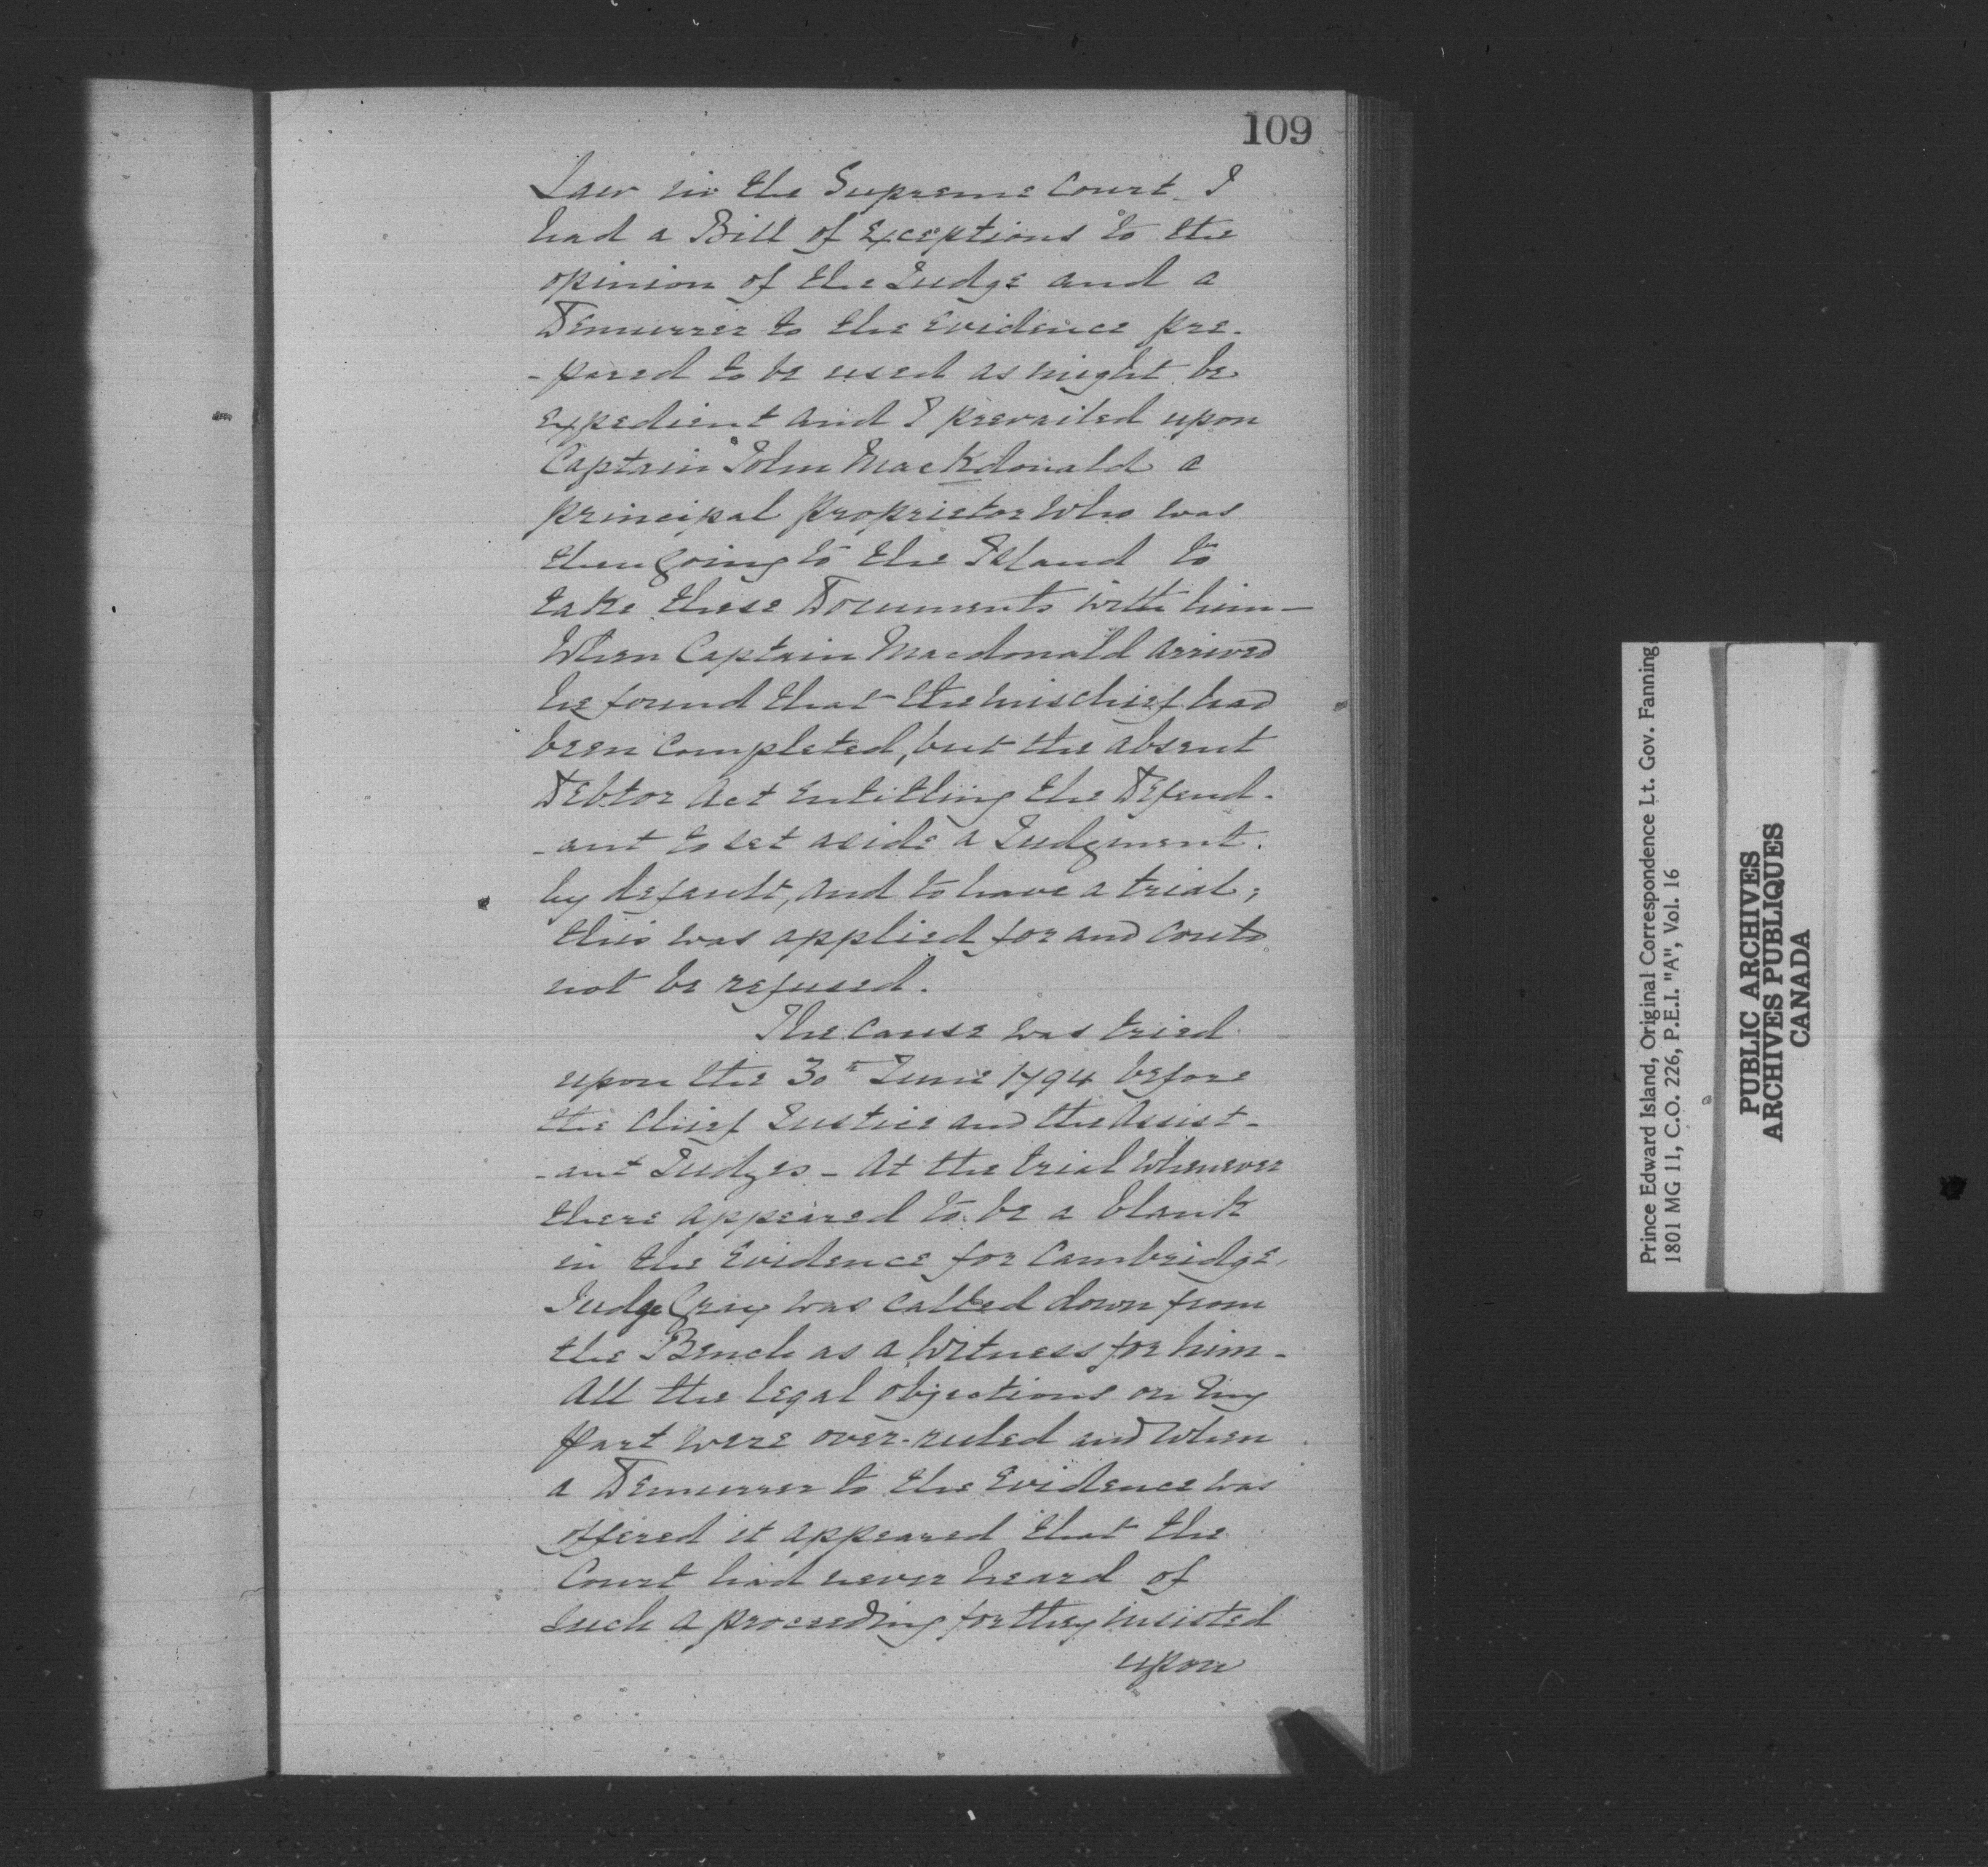 109
Law in the Supreme Court I
had a Bill of Exceptions to the
opinion of the Judge and a
Demurrer to the Evidence pre-
-pared to be used as might be
expedient and I prevailed upon
Captain John MacKdonald a
principal proprietor who was
then going to the Island to
take these Documents with him—
When Captain Macdonald arrived
he found that the mischief had
been completed, but the absent
Debtor Act Entitling the Defend-
-ant to set aside a Judgment
by default, and to have a trial;
this was applied for and could
not be refused.
The cause was tried
upon the 30th June 1794 before
the Chief Justice and the Assist-
-ant Judges - At the trial whenever
there appeared to be a blank
in the Evidence for Cambridge,
Judge Gray was called down from
the Bench as a Witness for him -
All the legal objections on my
part were over-ruled and when
a Demurrer to the Evidence was
offered it appeared that the
Court had never heard of
such a proceeding for they insisted
upon
Prince Edward Island, Original Correspondence Lt. Gov. Fanning
1801 MG 11, C.O. 226, P.E.I. "A", Vol. 16
PUBLIC ARCHIVES
ARCHIVES PUBLIQUES
CANADA